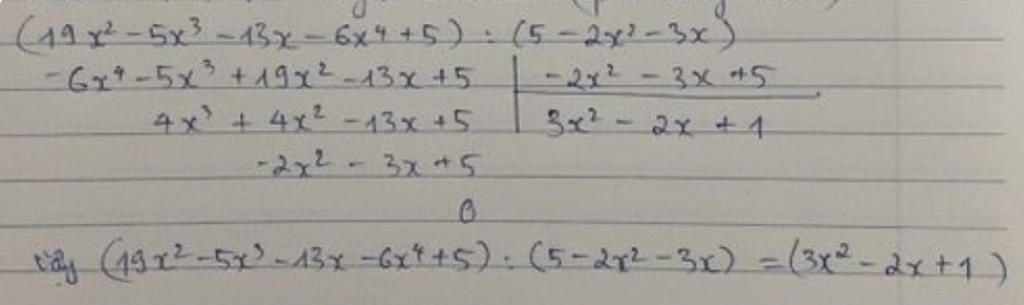 (19x² - 5x³ - 13x - 6x⁴ + 5) : (5 - 2x² - 3x)
-6x⁴ - 5x³ + 19x² - 13x + 5 | -2x² - 3x + 5
4x³ + 4x² - 13x + 5 | 3x² - 2x + 1
-2x² - 3x + 5
0
Vậy (19x² - 5x³ - 13x - 6x⁴ + 5) : (5 - 2x² - 3x) = (3x² - 2x + 1)